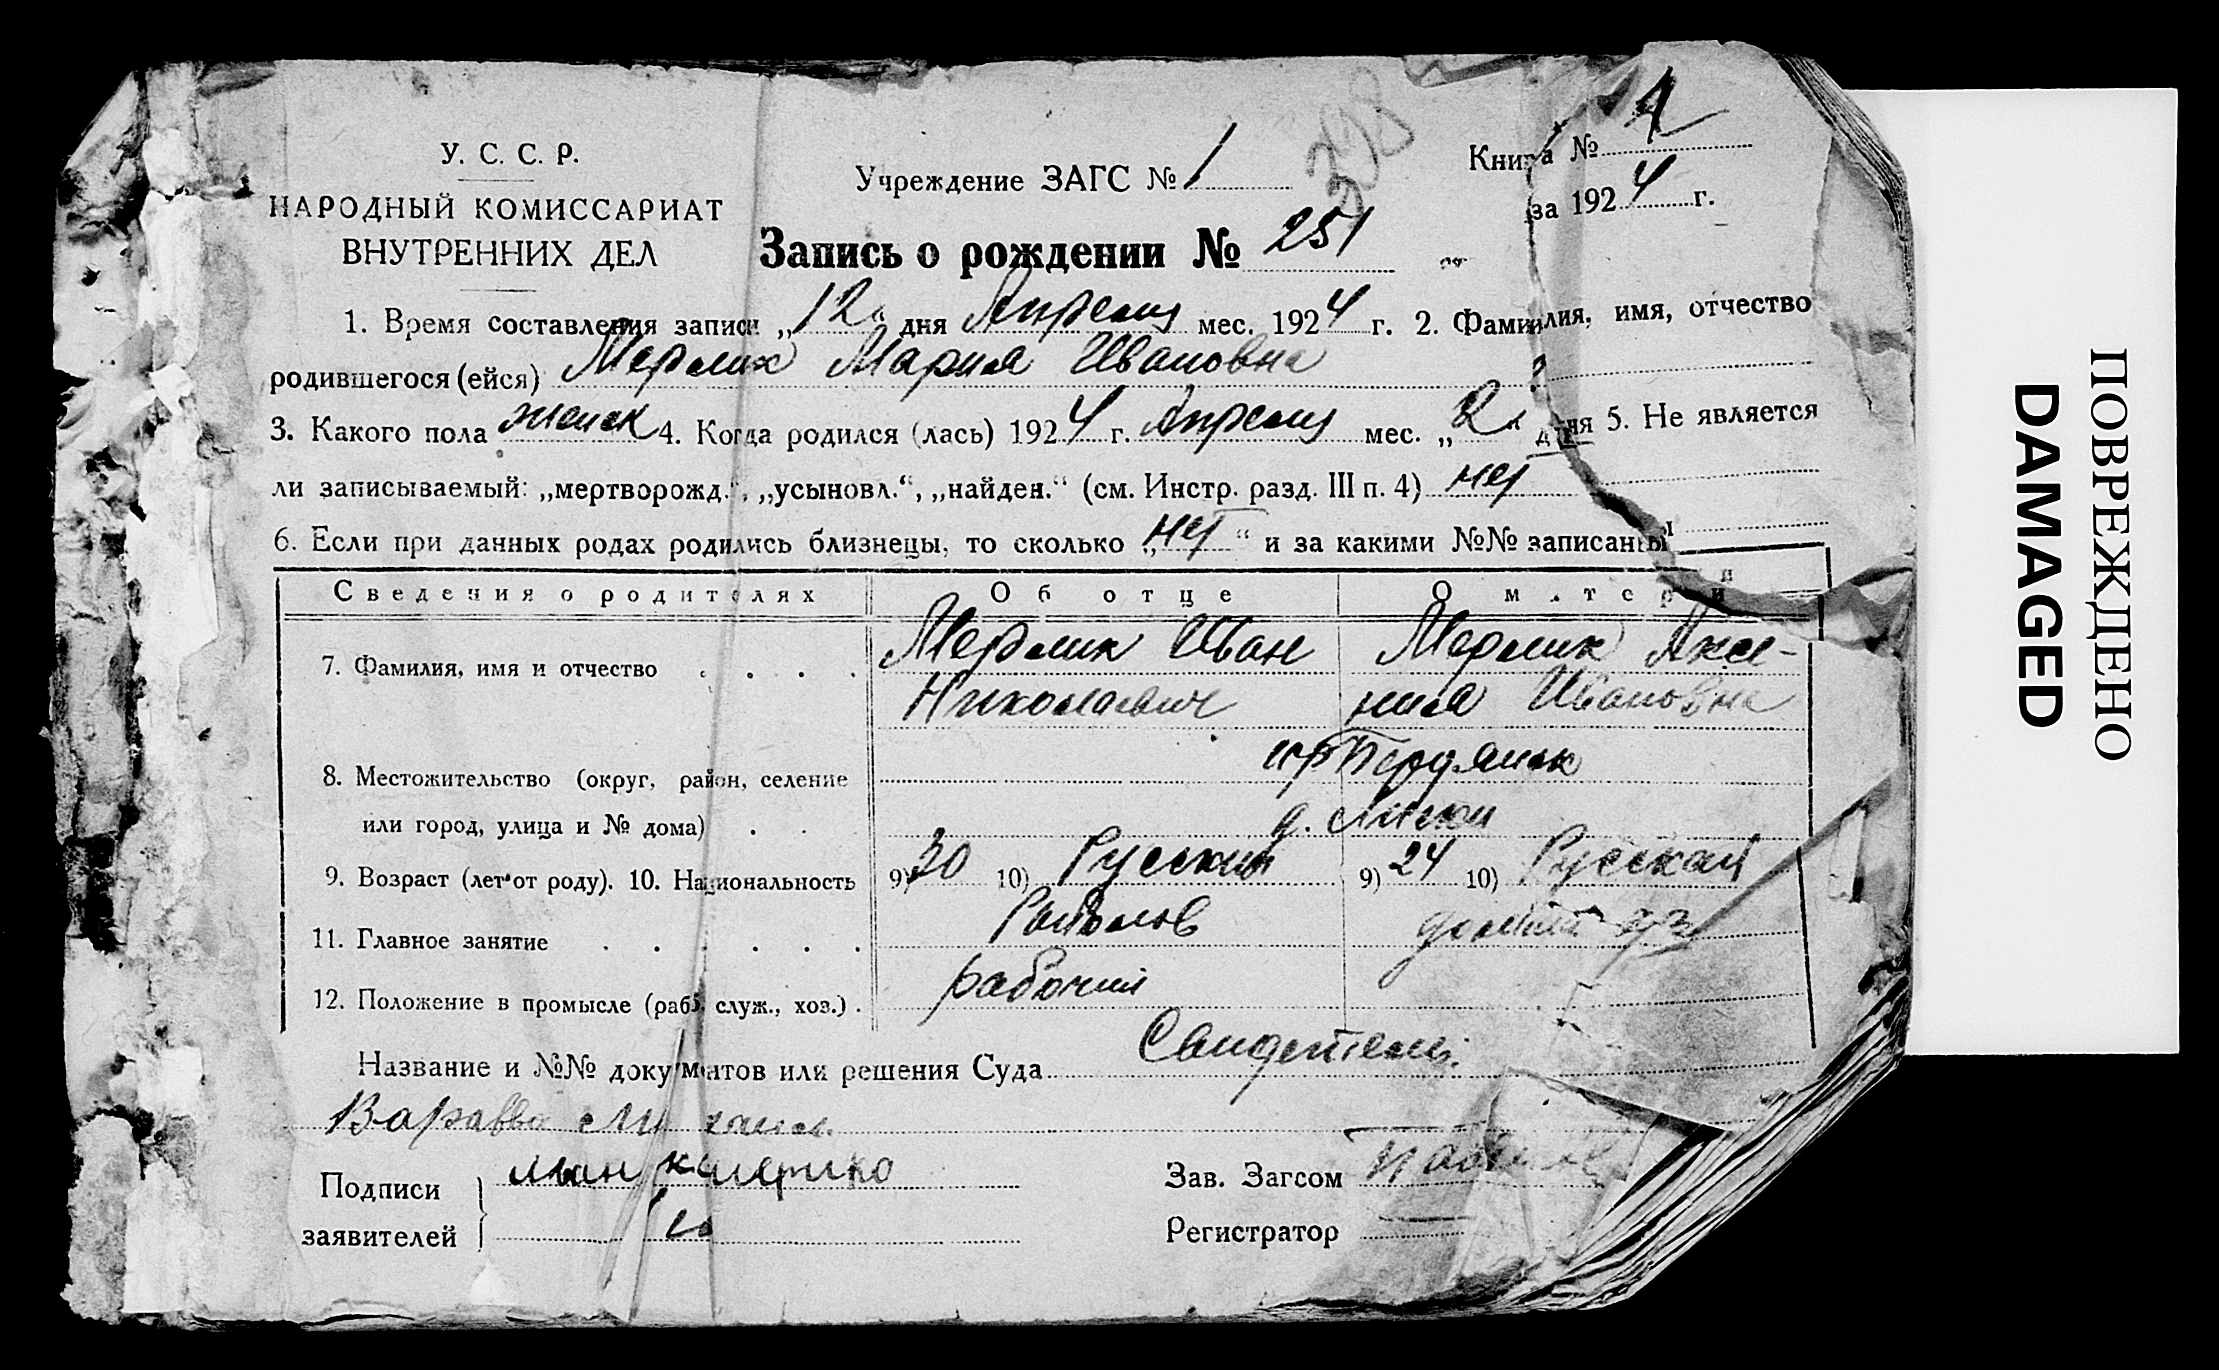 У. С. С. Р.
НАРОДНЫЙ КОМИССАРИАТ
ВНУТРЕННИХ ДЕЛ
Учреждение ЗАГС № 1
398
Книга № 1
за 1924 г.
Запись о рождении № 251
1. Время составления записи „12“ дня Апреля мес. 1924 г. 2. Фамилия, имя, отчество
родившегося (ейся) Мерлик Мария Ивановна
3. Какого пола женск 4. Когда родился (лась) 1924 г. Апреля мес. „2“ дня 5. Не является
ли записываемый: „мертворожд.“, „усыновл.“, „найден.“ (см. Инстр. разд. III п. 4) нет
6. Если при данных родах родились близнецы, то сколько „нет“ и за какими №№ записаны
Сведения о родителях Об отце О матери
7. Фамилия, имя и отчество . . . . Мерлик Иван Мерлик Аксе-
Николаевич ния Ивановна
8. Местожительство (округ, район, селение гр Бердянск
или город, улица и № дома) . . . д. Лиски
9. Возраст (лет от роду). 10. Национальность 9) 30 10) Русский 9) 24 10) Русская
11. Главное занятие . . . . . . Рыболов домаш хоз
12. Положение в промысле (раб., служ., хоз.) . рабочий
Название и №№ документов или решения Суда Свидетели:
Варавва
Подписи
заявителей
Зав. Загсом
Регистратор
ПОВРЕЖДЕНО
DAMAGED